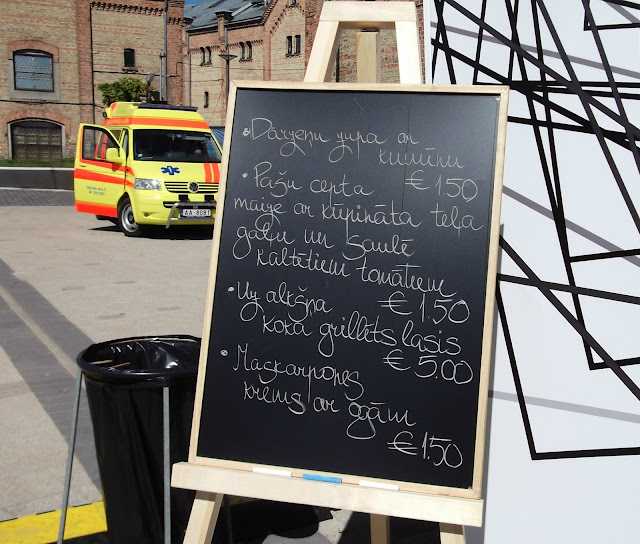 • Dārzeņu zupa ar
kuiiuīnu
€ 1.50
• Pašu cepta
maize ar kūpināta teļa
gaļu un saulē
kaltētiem tomātiem
€ 1.50
• Uz alkšņa
koka grillēts lasis
€ 5.00
• Maskarpones
krēms ar ogām
€ 1.50
AA-8081